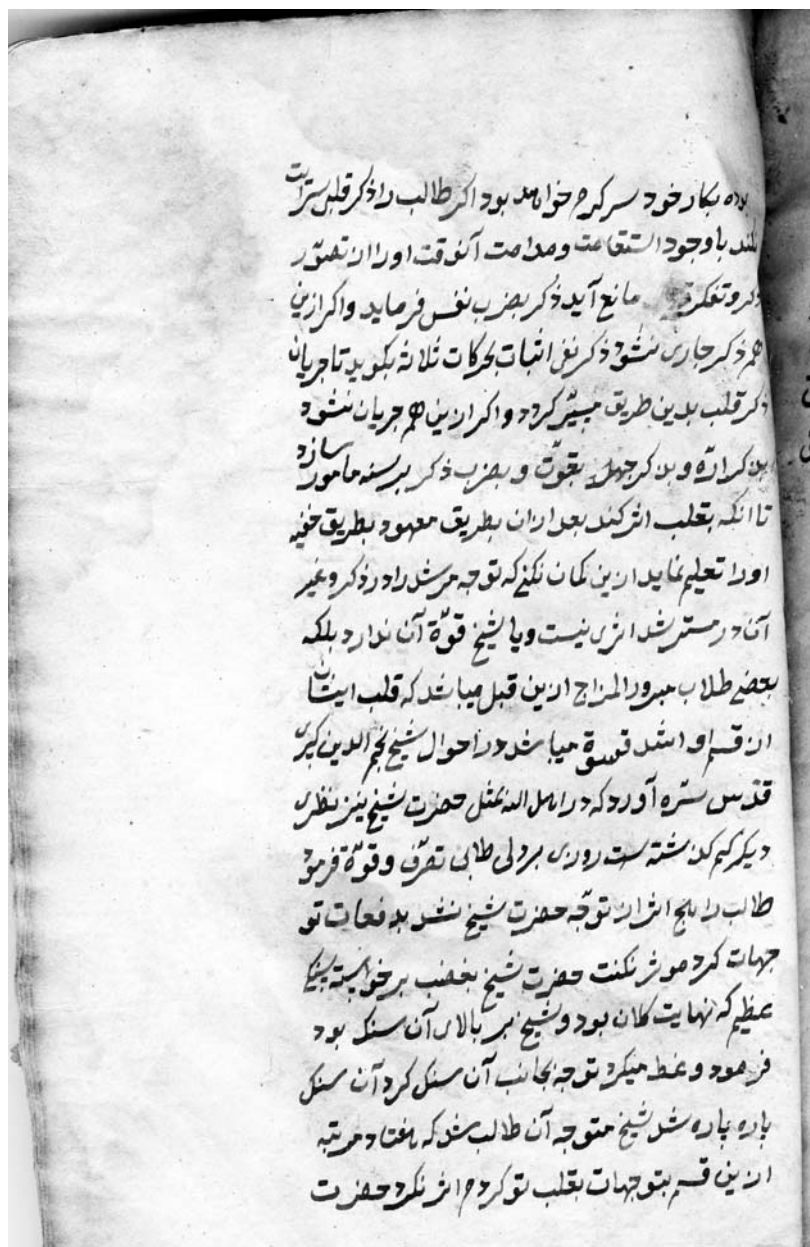 بوده بکار خود سرکرم خواهد بود اکر طالب را ذکر قلبی سرایت
نکند با وجود استقامت و مداومت آنوقت او را از تصوّر
ذکر و تفکر مانع آید ذکر بضرب نفس فرماید و اکر ازین
هم ذکر جاری نشود ذکر نفی اثبات بحرکات ثلاثه بکوید تا جریان
ذکر قلب بدین طریق میسّر کردد و اکر ازین هم جریان نشود
بذکر ارّه و بذکر جهر بقوّت و بضرب ذکر بر سینه مامور سازد
تا انکه بقلب اثر کند بعد ازان بطریق معهود بطریق خفیه
او را تعلیم نماید ازین کمان نکنے که توجه مرشد را در ذکر و غیر
آن در مسترشد اثری نیست و یا شیخ قوّة آن ندارد بلکه
بعضے طلاب مبرود المزاج ازین قبل میباشد که قلب ایشان
ازن قسم او اشد قسوة میباشد در احوال شیخ نجم الدین کبری
قدّس سرّه آورد که در اهل الله مثل حضرت شیخ بنظری
دیکر کم کذشته ست روزی بر دلی طالبی تصرّف و قوّة فرمود
طالب را هیج اثر از توجّه حضرت شیخ نشد بدفعات تو
جهات کرد موثر نکشت حضرت شیخ بغضب برخواسته بسنک
عظیم که نهایت کلان بود و شیخ بر بالای آن سنک بود
فرمود وعظ میکرد توجه بجانب آن سنک کرد آن سنک
پاره پاره شد شیخ متوجه آن طالب شد که هفتاد مرتبه
ازین قسم بتوجهات بقلب تو کردم اثر نکرد حضرت